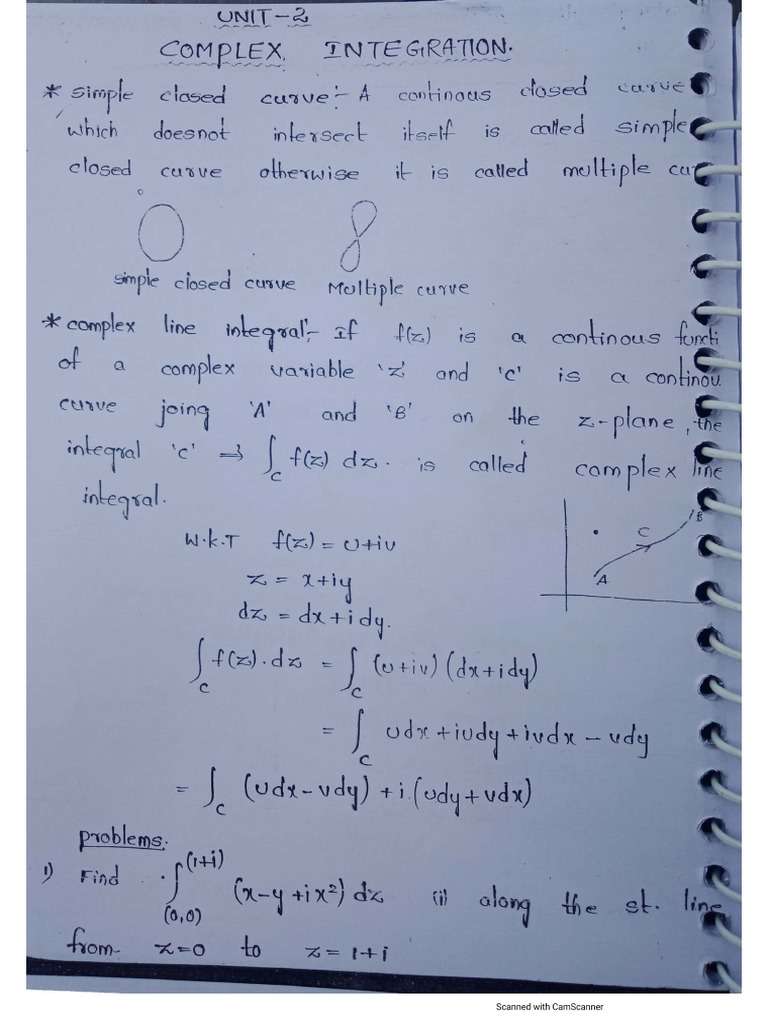 UNIT-2
COMPLEX INTEGRATION.
* simple closed curve:- A continous closed curve
which doesnot intersect itself is called simple
closed curve otherwise it is called multiple cur
simple closed curve Multiple curve
* complex line integral:- If f(z) is a continous functi
of a complex variable 'z' and 'c' is a continou
curve joing 'A' and 'B' on the z-plane, the
integral 'c' → ∫_C f(z) dz. is called complex line
integral.
B
C
A
W.K.T f(z) = u+iv
z = x+iy
dz = dx+idy.
∫_C f(z).dz = ∫_C (u+iv) (dx+idy)
= ∫_C udx+iudy+ivdx-vdy
= ∫_C (udx-vdy)+i.(udy+vdx)
problems:
1) Find ∫_(0,0)^(1+i) (x-y+ix²) dz (i) along the st. line
from z=0 to z=1+i
Scanned with CamScanner